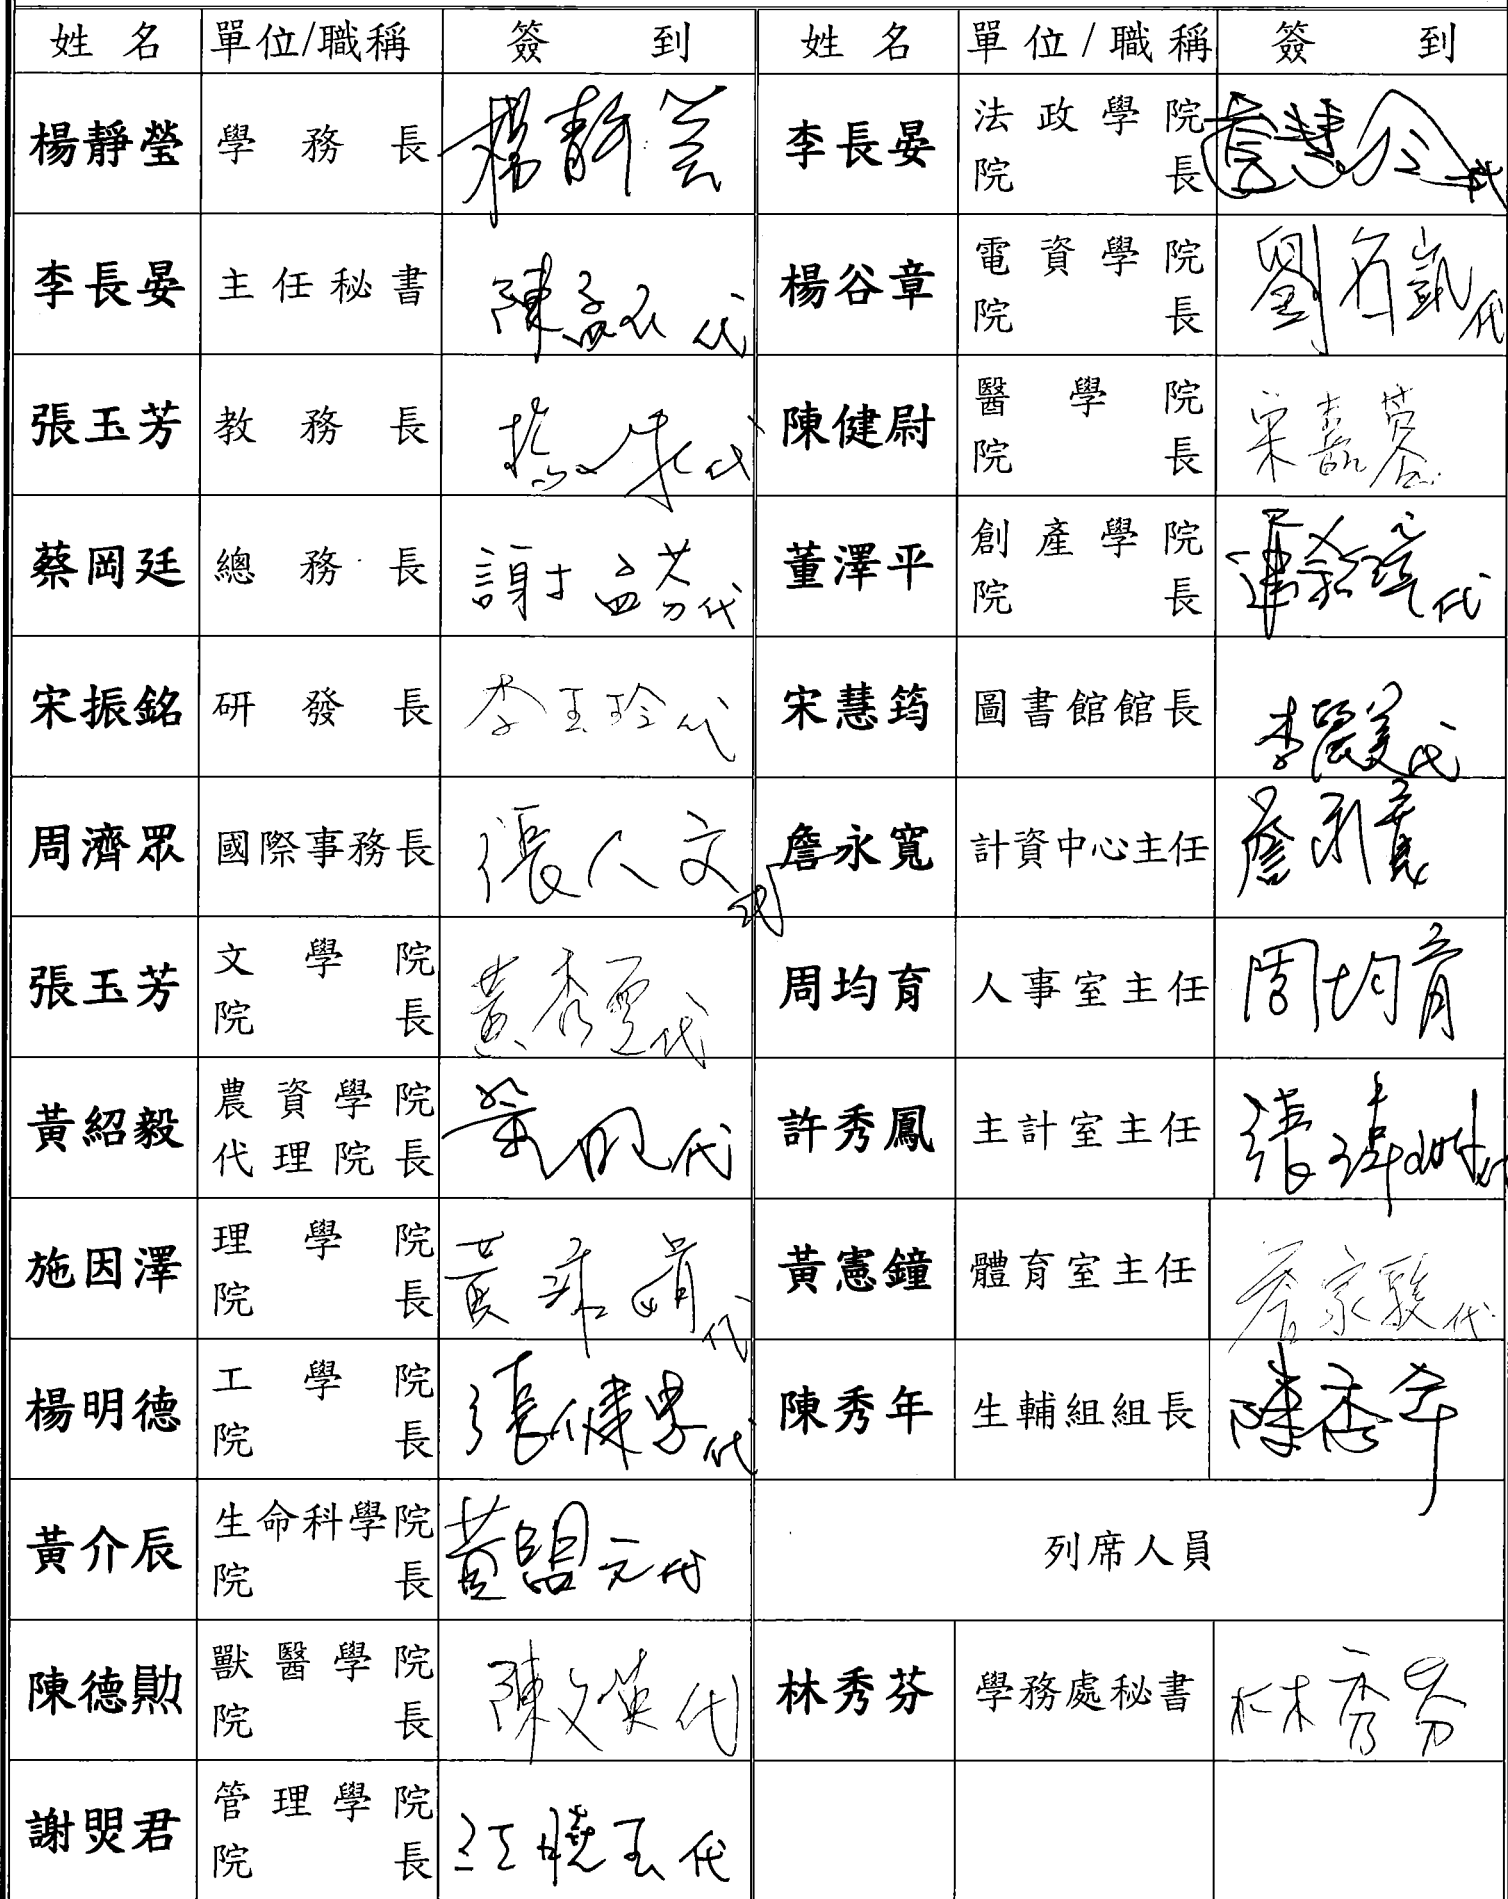 姓名 單位/職稱 簽到 姓名 單位/職稱 簽到
楊靜瑩 學務長 楊靜瑩 李長晏 法政學院院長 代
李長晏 主任秘書 陳 代 楊谷章 電資學院院長 劉 代
張玉芳 教務長 代 陳健尉 醫學院院長 宋嘉蓉
蔡岡廷 總務長 謝孟芬代 董澤平 創產學院院長 代
宋振銘 研發長 李玉玲代 宋慧筠 圖書館館長 李 美代
周濟眾 國際事務長 張人文代 詹永寬 計資中心主任 詹永寬
張玉芳 文學院院長 黃秀雯代 周均育 人事室主任 周均育
黃紹毅 農資學院代理院長 代 許秀鳳 主計室主任 張
施因澤 理學院院長 黃 娟代 黃憲鐘 體育室主任 詹家駿代
楊明德 工學院院長 張健忠代 陳秀年 生輔組組長 陳秀年
黃介辰 生命科學院院長 黃 元代 列席人員
陳德勲 獸醫學院院長 陳文英代 林秀芬 學務處秘書 林秀芬
謝焸君 管理學院院長 江曉玉代